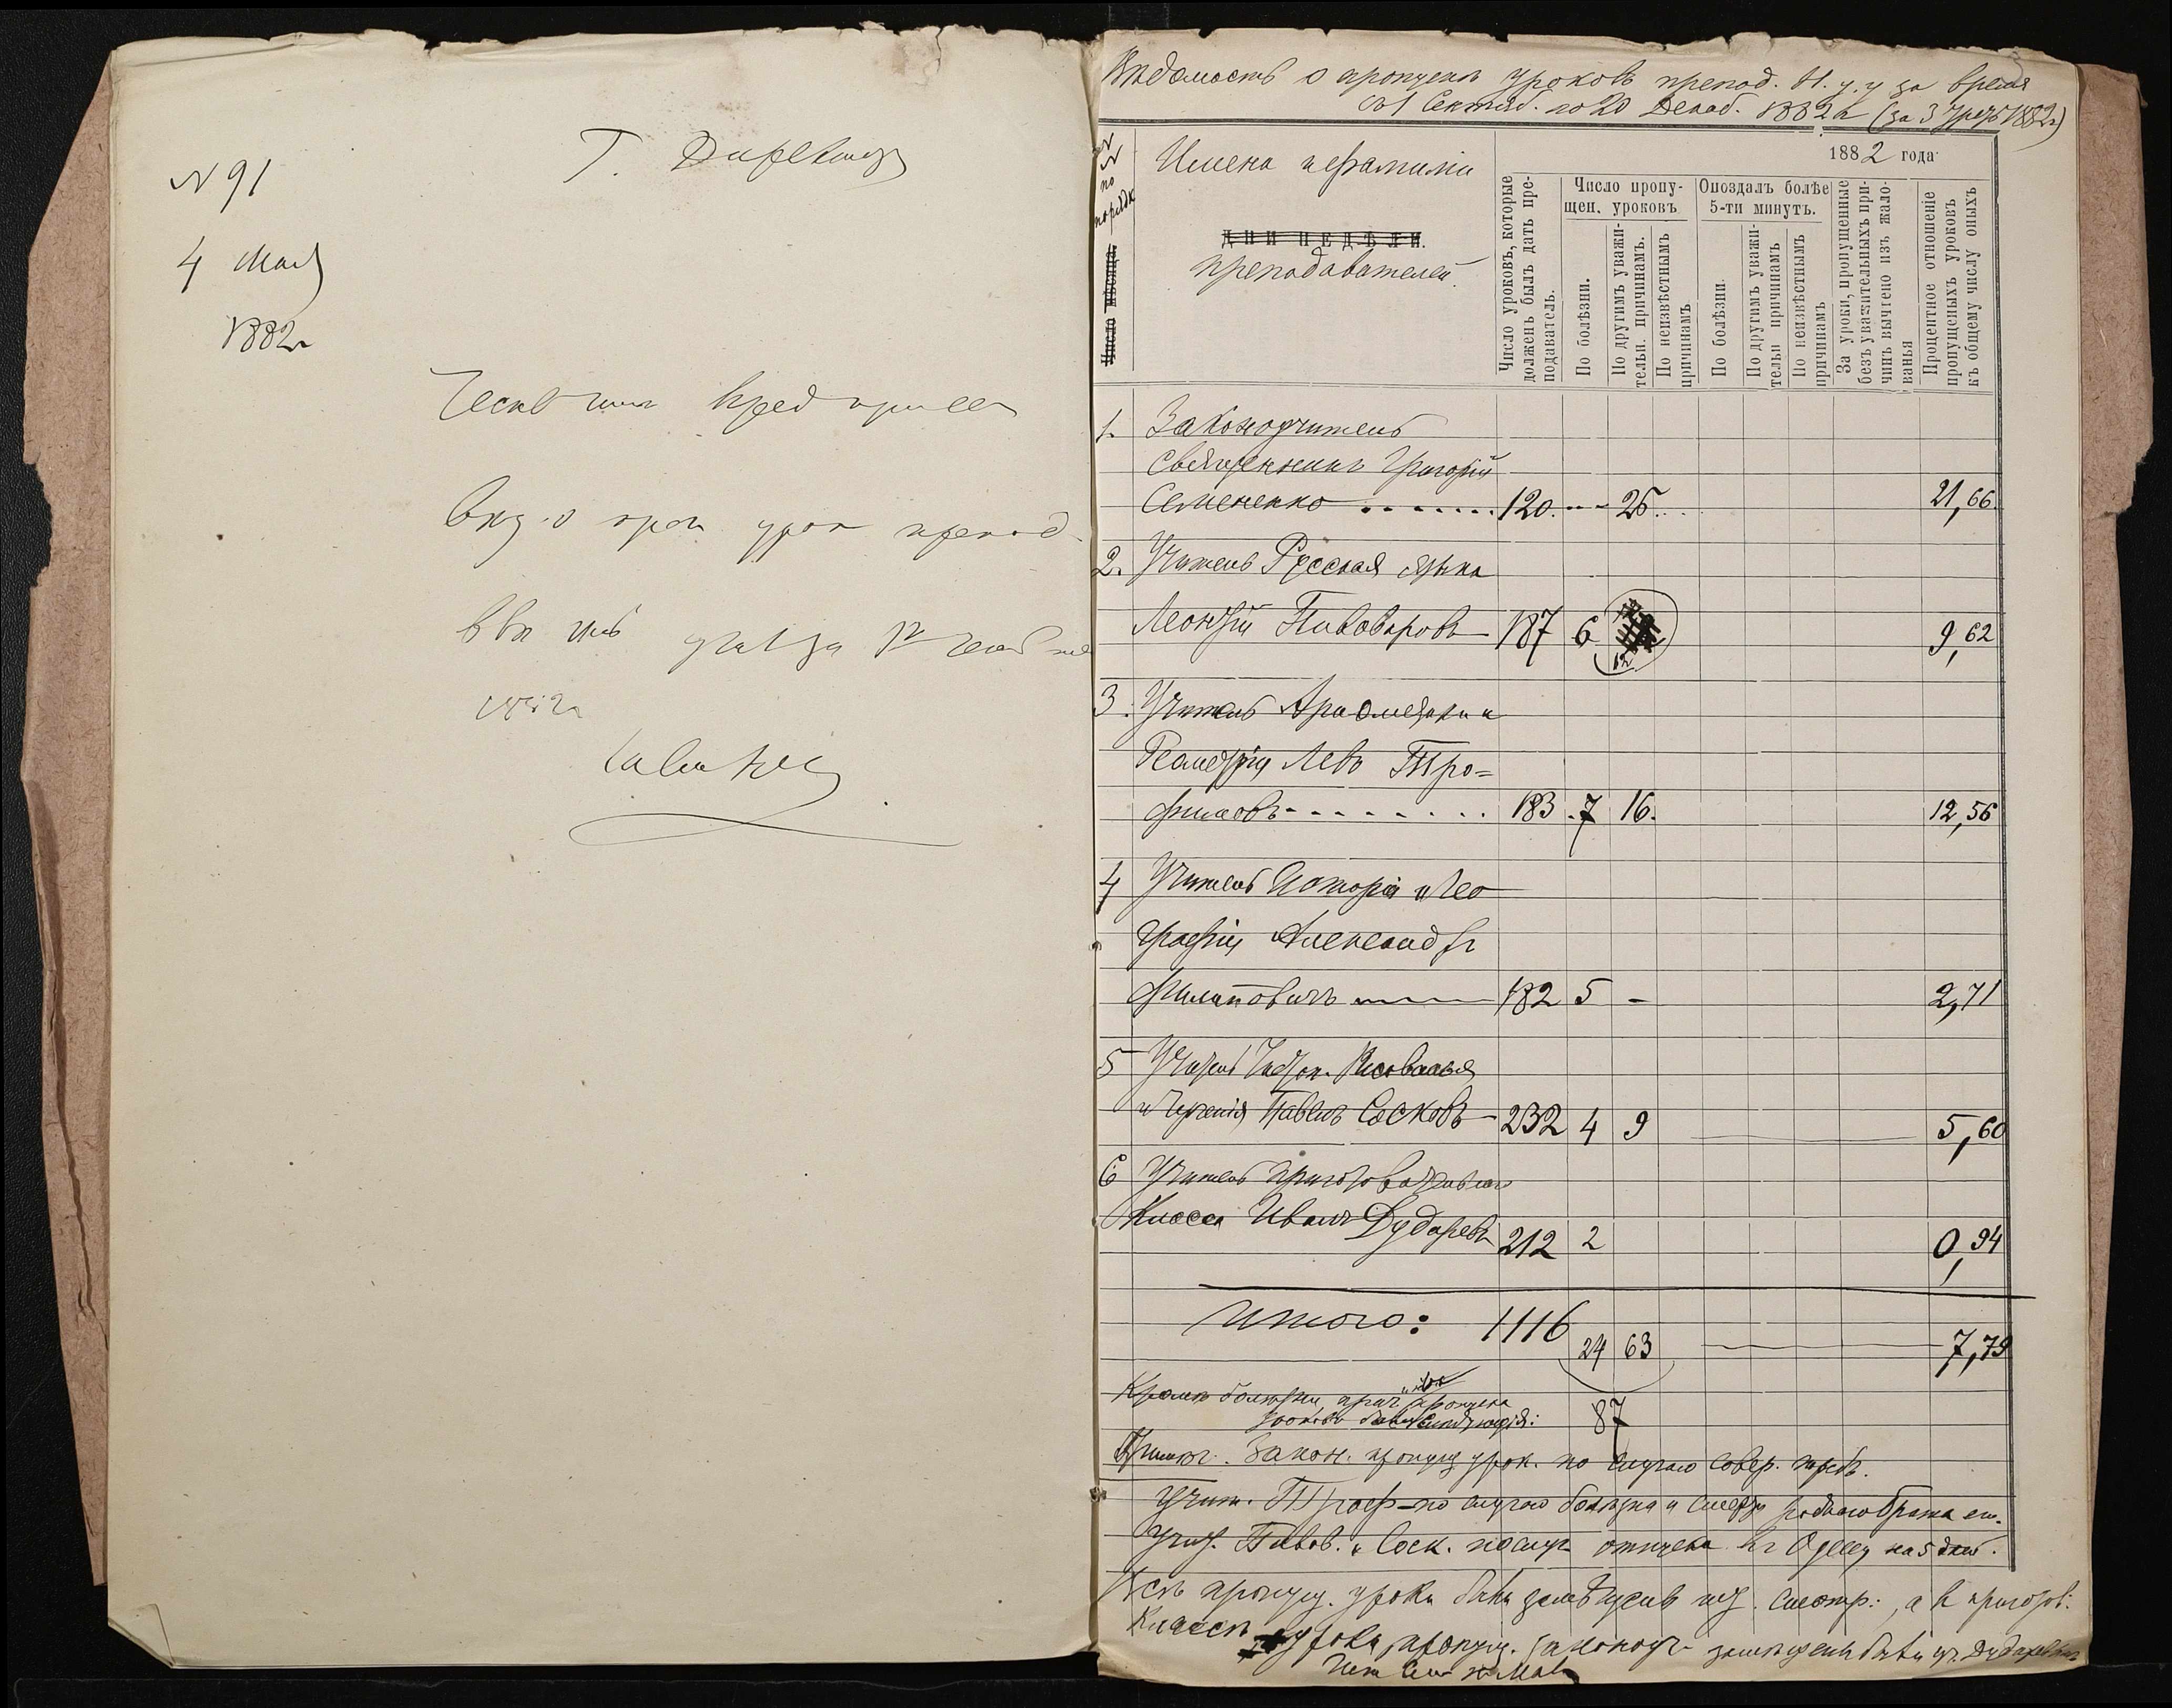 № 91
4 Мая
1882 г
Г. Директору
Честь имею
уро препод.
Ведомость о пропуске уроковъ препод. Н. у. у за время
съ 1 Сентяб. по 20 Декаб. 1882 г (за 3 треть 1882 г)
№ № по порядк
Число мѣсяца.
Имена и фамилии
ДНИ НЕДѢЛИ.
преподавателей.
1882 года
Число уроковъ, которые должень былъ дать преподаватель.
Число пропущен. уроковъ
По болѣзни.
По другимъ уважительн. причинамъ.
По неизвѣстнымъ причинамъ
Опоздалъ болѣе 5-ти минутъ.
По болѣзни.
По другимъ уважительн причинамъ
По неизвѣстнымъ причинамъ
За уроки, пропущенные безъ уважительныхъ причинъ вычтено изъ жалованья
Процентное отношеніе пропущеныхъ уроковъ къ общему числу оныхъ
1. Законоучитель
Священникъ Григорій
Семененко 120 26 21,66
2. Учитель Русскаго языка
Леонтій Пивоваровъ 187 6 12 9,62
3. Учитель Арифметики и
Геометріи Левъ Тро=
фимовъ 183 7 16. 12,56
4 Учитель Исторіи и Гео
графіи Александръ
Филиповичъ 182 5 - 2,71
5 Учитель Чистоп. Рисованія
и Черченія Павелъ Сосковъ 232 4 9 5,60
6 Учитель приготовительнаго
Класса Иванъ Дударевъ 212 2 0,94
Итого: 1116 24 63 7,79
Кромѣ болѣзни, прич пропуска
уроковъ были слѣдующія: 87
Примѣч. Закон. пропущ урок. по случаю совер. требъ.
Учит. Троф по случаю болѣзни и смерти роднаго брата его.
Учит. Пивов. и Соск. по случ отпуска въ Одессу на 5 дней.
Всѣ пропущ. уроки были замѣщены шт. смотр:, а въ приготов:
Классѣ уроки пропущ. законоуч замѣщены были уч. Дударевымъ